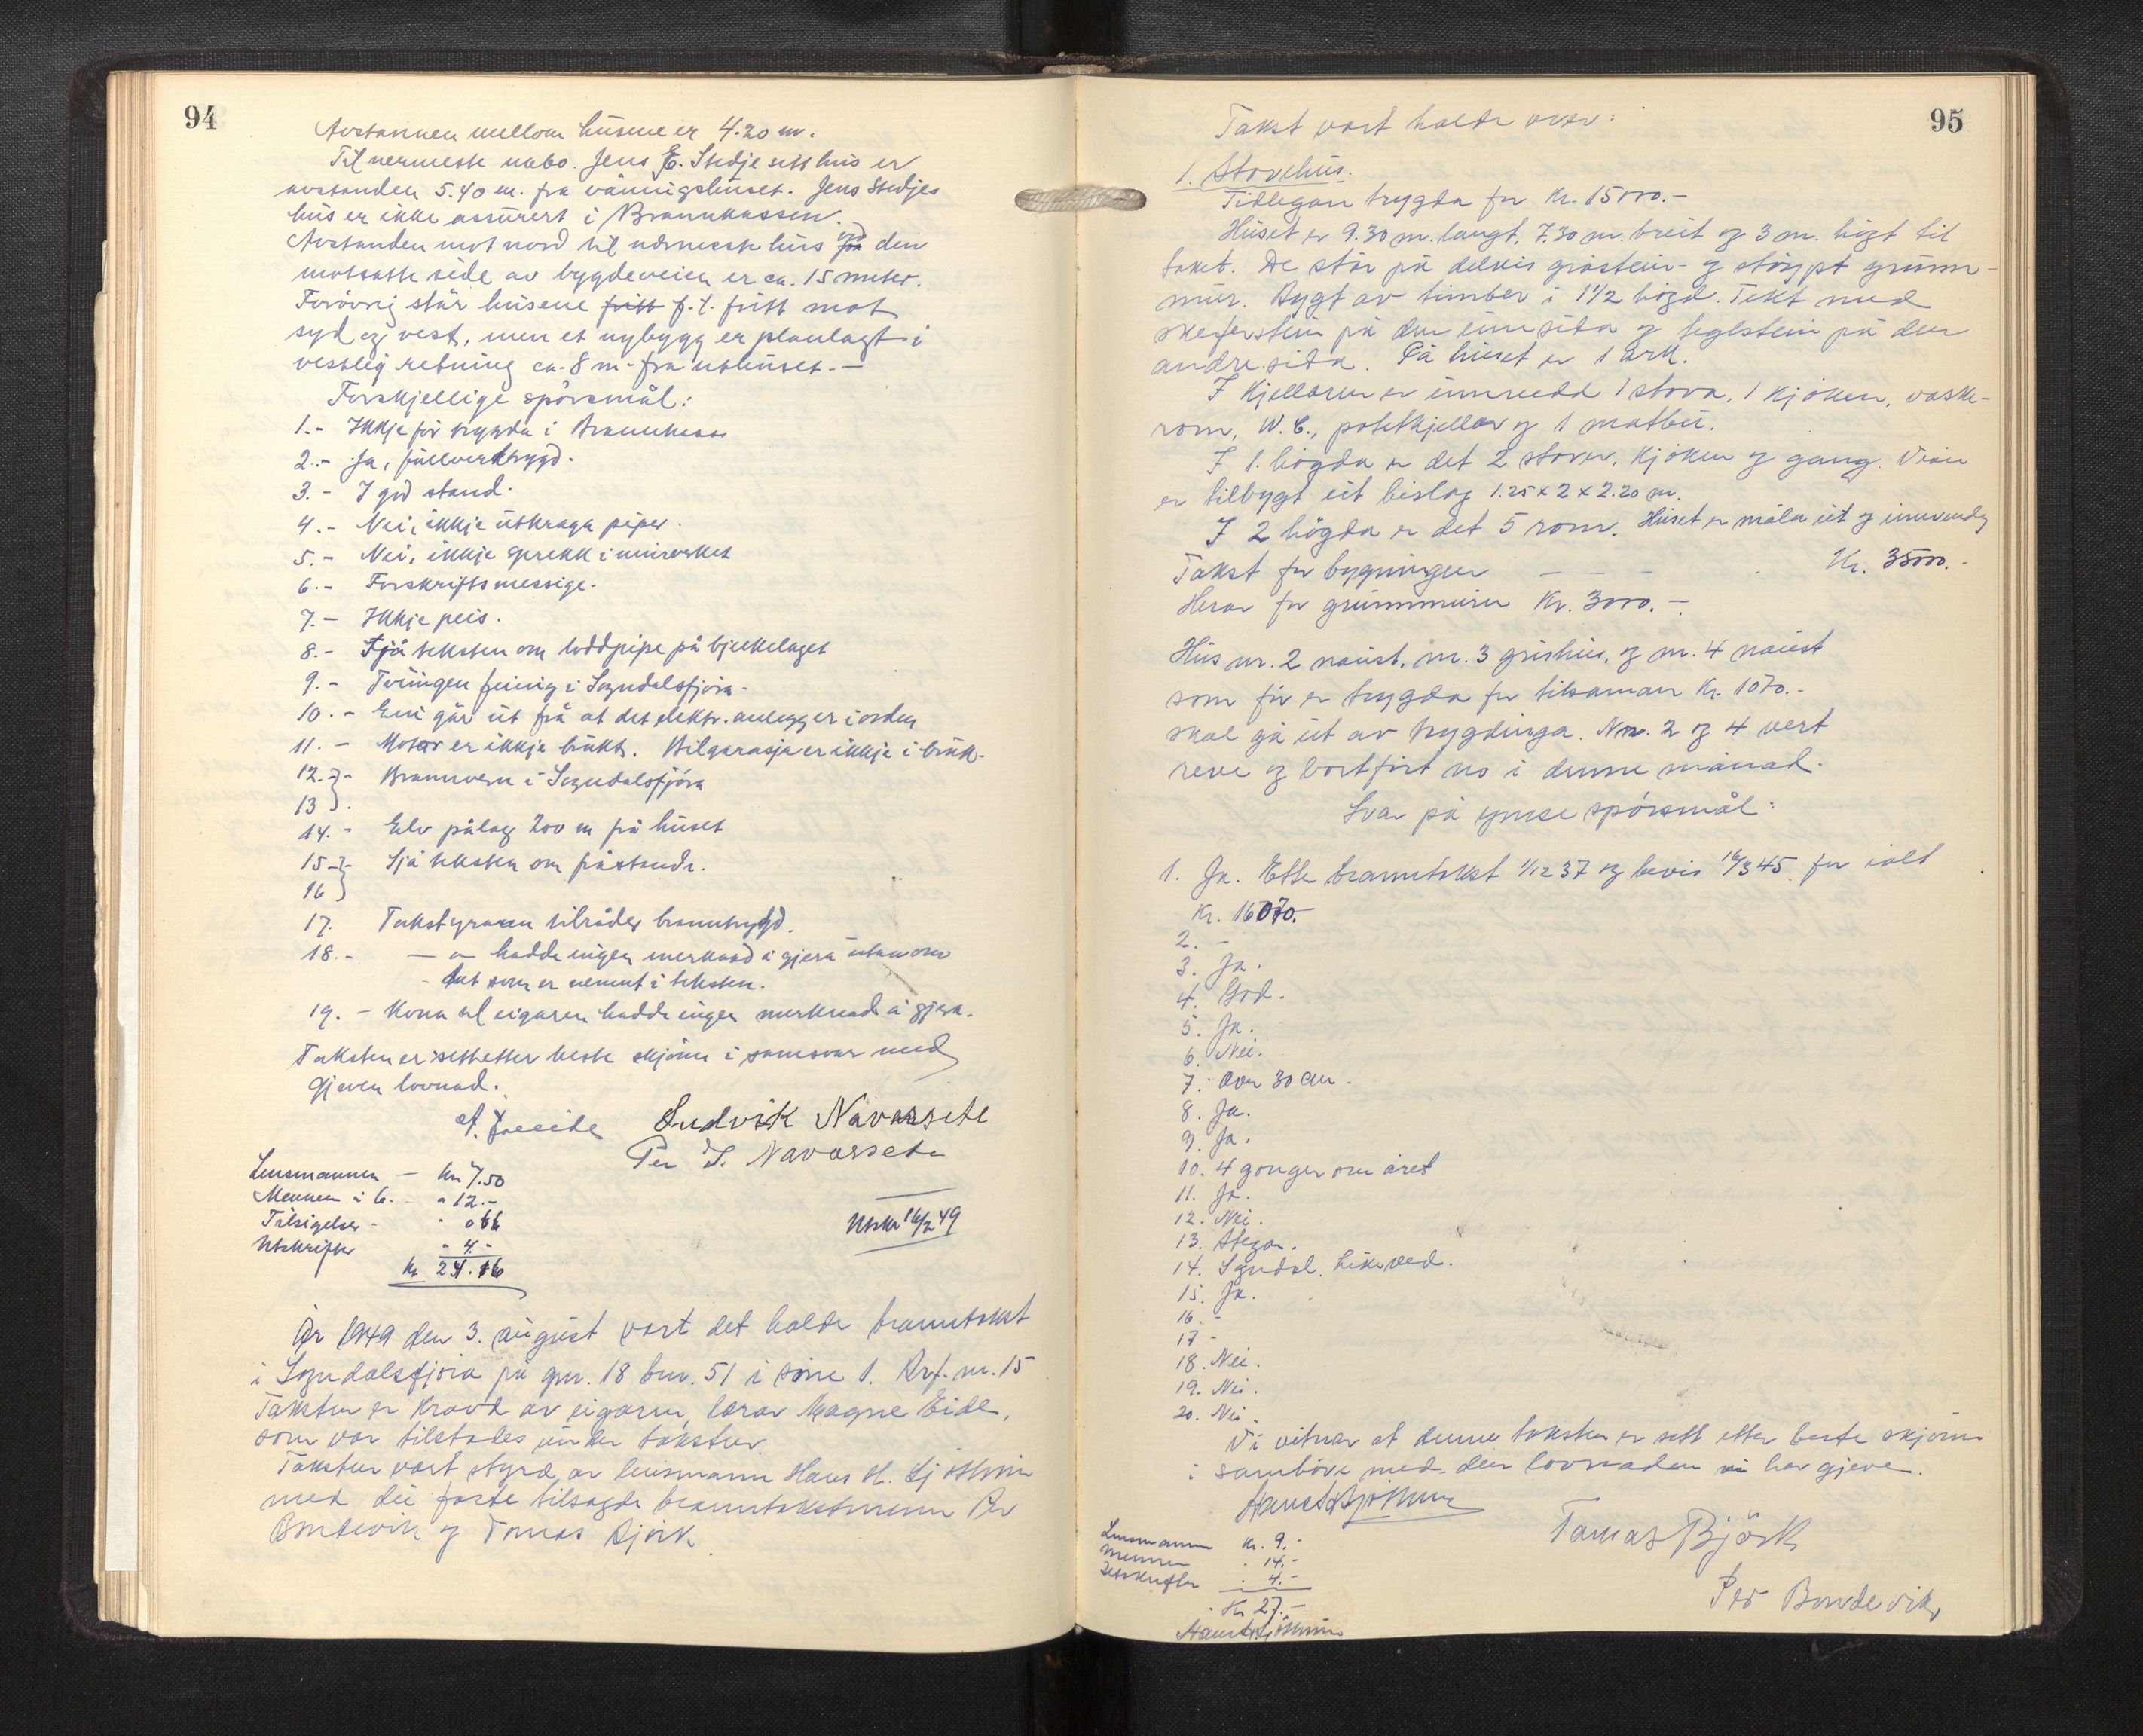 94
Avstannen mellom husene er 4.20 m.
Til nermeste nabo. Jens E. Stedje sitt hus er
avstanden 5.40 m. fra våningshuset. Jens Stedjes
hus er ikke assurert i Brannkassen.
Avstanden mot nord til nærmeste hus på den
motsatte side av bygdeveien er ca. 15 meter.
Forøvrig står husene fritt f.t. fritt mot
syd og vest, men et nybygg er planlagt i
vestlig retning ca. 8 m. fra uthuset. —
Forskjellige spörsmål:
1.- Ikkje för trygda i Brannkassa
2.- Ja, fullverdtrygd.
3.- I god stand.
4.- Nei, ikkje utkraga piper.
5.- Nei, ikkje sprekk i murverket
6.- Forskriftsmessige.
7.- Ikkje peis.
8.- Sjå teksten om loddpipe på bjelkelaget
9.- Tvungen feiing i Sogndalsfjöra.
10.- Ein går ut frå at det elektr. anlegg er i orden
11.- Motor er ikkje brukt. Bilgarasje er ikkje i bruk.
12.}- Brannvern i Sogndalsfjöra
13}.
14.- Elv pålag 200 m frå huset
15-}- Sjå teksten om fråstand.
16}
17. Takstgrannan tilråder branntrygd.
18.- — " — hadde ingen merknad å gjera utanom
det som er nemnt i teksten.
19. - Kona til eigaren hadde ingen merknad å gjera.
Taksten er sett etter beste skjönn i samsvar med
gjeven lovnad.
Ludvik Navarsete
Per S. Navarsete
Lensmannen — kr 7.50
Mennene à 6. - " 12.-
Tilsigelser - " 0 66
Utskrifter " 4.-
Kr 24.16
Utskr 16/2 49
År 1949 den 3. august vart det halde branntakst
i Sogndalsfjöra på gnr. 18 bnr. 51 i sone 1. Brf. nr. 15
Taksten er kravd av eigaren, lærar Magne Eide,
som var tilstades under taksten.
Taksten vart styrd av lensmann Hans H. Ljöthun
med dei faste tilsagde branntakstmenn Per
Bondevik og Tomas Björk.
95
Takst vart halde over:
1. Stovehus.
Tidlegare trygda for kr. 15000.-
Huset er 9.30 m. langt, 7.30 m. breit og 3 m. högt til
taket. De står på delvis gråstein- og stöypt grunn-
mur. Bygt av timber i 1 1/2 högd. Tekt med
skeferstein på den eine sida og teglstein på den
andre sida. På huset er 1 ark.
I kjellaren er innreedd 1 stova, 1 kjöken, vaske-
rom, W.C., potetkjellar og 1 matbu.
I 1. högda er det 2 stover, kjöken og gang. Vidare
er tilbygt eit bislag 1.25 x 2 x 2.20 m.
I 2 högda er det 5 rom. Huset er måla ut og innvendig
Takst for bygningen — — — Kr. 35000.-
Herav for grunnmuren Kr. 3000.-
Hus nr. 2 naust, nr. 3 grishus, og nr. 4 naust
som för er trygda for tilsaman Kr. 1070.-
skal gå ut av trygdinga. Nr. 2 og 4 vert
reve og bortfört no i denne månad.
Svar på ymse spörsmål:
1. Ja. Etter branntakst 1/12 37 og bevis 16/3 45 for ialt
Kr. 16070.-
2. -
3. Ja.
4. God.
5. Ja.
6. Nei.
7. Over 30 cm.
8. Ja.
9. Ja.
10. 4 gonger om året
11. Ja.
12. Nei.
13. Stegar.
14. Sogndal. like ved.
15. Ja.
16. -
17 -
18. Nei.
19. Nei.
20. Nei.
Vi vitnar at denne taksten er sett etter beste skjönn
i samhöve med den lovnaden vi har gjeve.
Hans H Ljöthun
Tomas Björk
Per Bondevik
Lensmann Kr. 9.-
Mennene " 14.-
Utskrifter " 4.-
Kr 27.-
Hans H Ljöthun